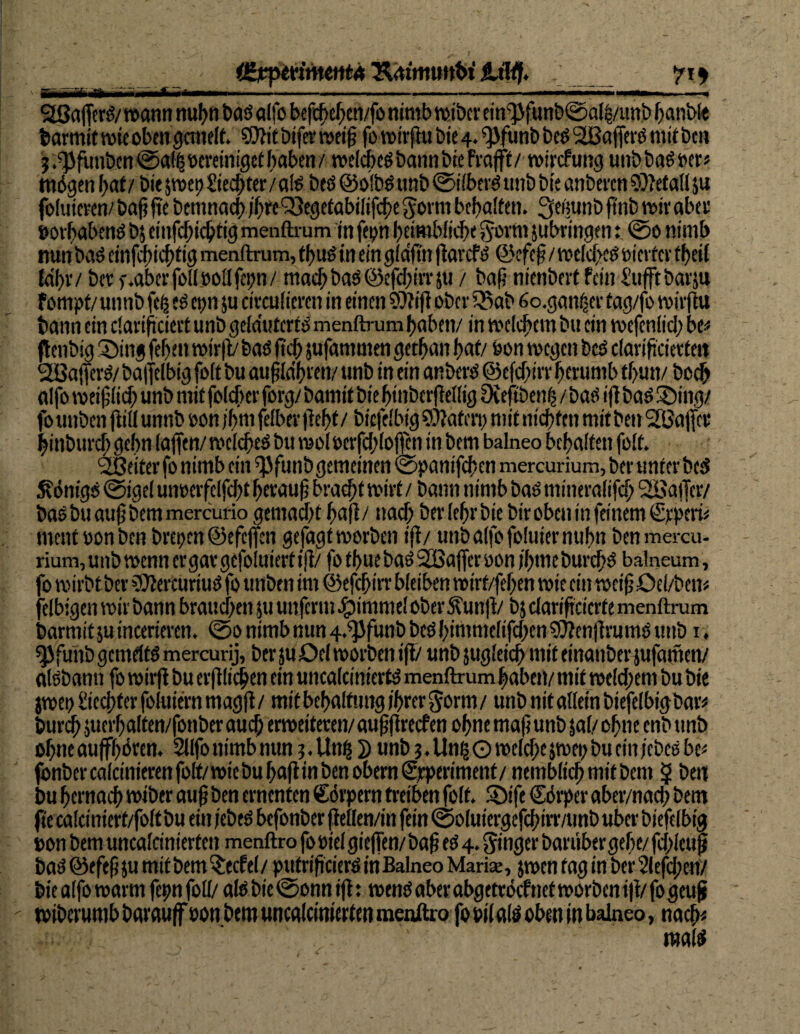 Experimenta Raimundi Lullij. 719
Wassers/ wann nuhn das also beschehen/so nimb wider ein Pfund Saltz/und handle
darmit wie oben gemelt. Mit diser weiß so wirstu die 4. Pfund des Wassers mit den
3. Pfunden Saltz vereiniget haben/ welches dann die krafft/ wirckung und das ver⸗
mögen hat/ die zwey Liechter/ als des Golds und Silbers und die anderen Metall zu
soluieren/ daß sie demnach ihre Vegetabilische Form behalten. Jetzund sind wir aber
vorhabens dz einschichtig menstrum in seyn heimbliche Form zubringen: So nimb
nun das einschichtig menstrum, thus in ein gläsin starcks Gefeß/ welches vierter theil
lähr/ der 5. aber soll voll seyn/ mach das Geschirr zu/ daß nienbert kein Lufft darzu
kompt/ unnd setz es eyn zu circulieren in einen Mist oder Bad 60. gantzer tag/so wirstu
dann ein clarificiert und geläuterts menstrum haben/ in welchem du ein wesenlich be⸗
stendig Ding sehen wirst/ das sich zusammen gethan hat/ von wegen des clarificierten
Wassers/ dasselbig solt du außlähren/ und in ein anders Geschirr herumb thun/ doch
also weißlich und mit solcher sorg/ damit die hinderstellig Residentz/ das ist das Ding/
so unden still unnd von jhm selber steht/ dieselbig Matery mit nichten mit den Wasser
hindurch gehn lassen/ welches du wol verschlossen in dem balneo behalten solt.
Weiter so nimb ein Pfund gemeinen Spanischen mercurium, der unter des
Königs Sigel unverfelscht herauß bracht wirt/ dann nimb das mineralisch Wasser/
das du auß dem mercurio gemacht hast/ nach der lehr die dir oben in seinem Experi⸗
ment von den dreyen Gefessen gesagt worden ist/ und also soluier nuhn den mercu-
rium, und wenn er gar gesoluiert ist/ so thue das Wasser von jhme durchs balneum,
so wirdt der Mercurius so unden im Geschirr bleiben wirt/sehen wie ein weiß Oel/den⸗
selbigen wir dann brauchen zu unserm Himmel oder Kunst/ dz clarificierte menstrum
darmit zu incerieren. So nimb nun 4. Pfund des himmelischen Menstrums und 1.
Pfund gemelts mercurij, der zu Oel worden ist/ und zugleich mit einander zusamen/
alsdann so wirst du erstlichen ein uncalcinierts menstrum haben/ mit welchem du die
zwey Liechter soluiern magst/ mit behaltung ihrer Form/ und nit allein dieselbig dar⸗
durch zuerhalten/sonder auch erweiteren/ außstrecken ohne maß und zal/ ohne end und
ohne auffhören. Also nimb nun 3. Untz ☽ und 3. Untz ☉ welche zwey du ein jedes be⸗
sonder calcinieren solt/ wie du hast in den obern Experiment/ nemblich mit dem ☿ den
du hernach wider auß den ernenten Cörpern treiben solt. Dise Cörper aber/nach dem
sie calciniert/solt du ein jedes besonder stellen/in sein Soluiergeschirr/und uber dieselbig
von dem uncalcinierten menstro so viel giessen/ daß es 4. Finger darüber gehe/ schleuß
das Gefeß zu mit dem Deckel/ putrificiers in Balneo Mariæ, zwen tag in der Aeschen/
die also warm seyn soll/ als die Sonn ist: wens aber abgetröcknet worden ist/ so geuß
widerumb darauff von dem uncalcinierten menstro so vil als oben in balneo, nach⸗
mals